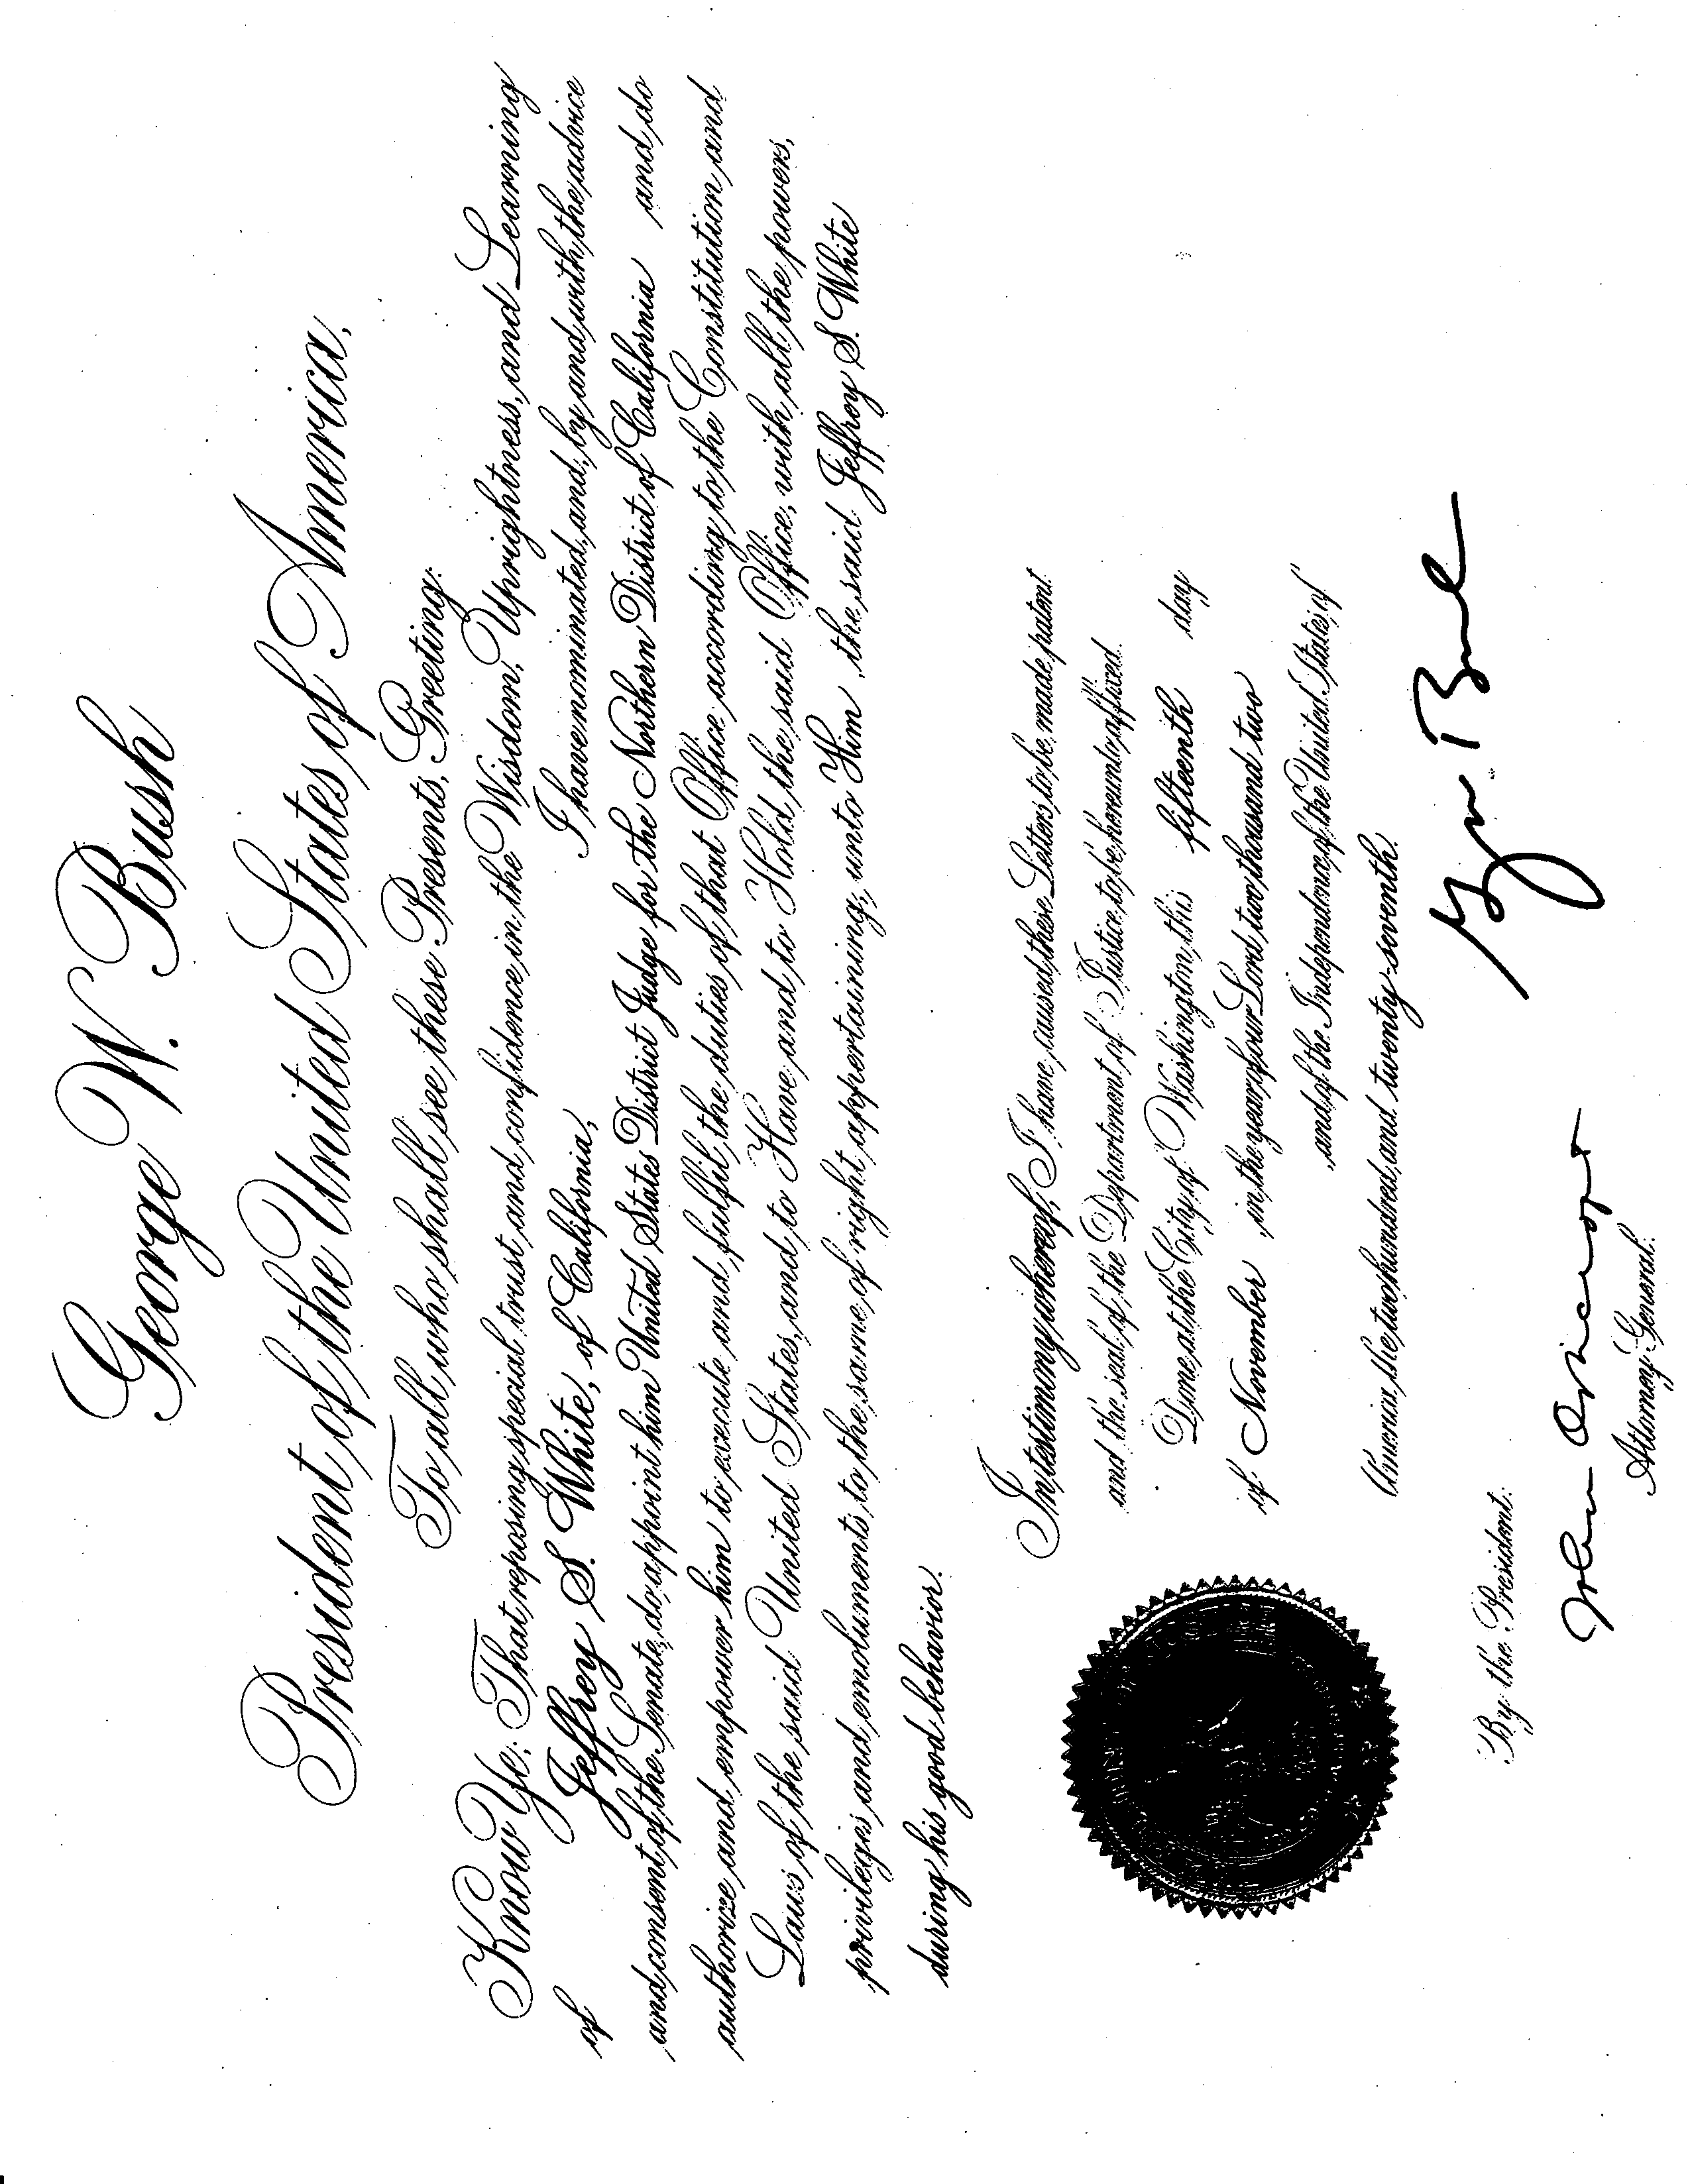 George W. Bush
President of the United States of America,
To all who shall see these Presents, Greeting:
Know Ye; That reposing special trust and confidence in the Wisdom, Uprightness, and Learning
of Jeffrey S. White, of California, I have nominated, and, by and with the advice
and consent of the Senate, do appoint him United States District Judge for the Northern District of California and do
authorize and empower him to execute and fulfil the duties of that Office according to the Constitution and
Laws of the said United States, and to Have and to Hold the said Office, with all the powers,
privileges and emoluments to the same of right appertaining, unto Him the said Jeffrey S. White
during his good behavior.
In testimony whereof, I have caused these Letters to be made patent
and the seal of the Department of Justice to be hereunto affixed.
Done at the City of Washington, this fifteenth day
of November in the year of our Lord two thousand two
and of the Independence of the United States of
America, the two hundred and twenty-seventh.
G W. Bush
By the President:
John Ashcroft
Attorney General.